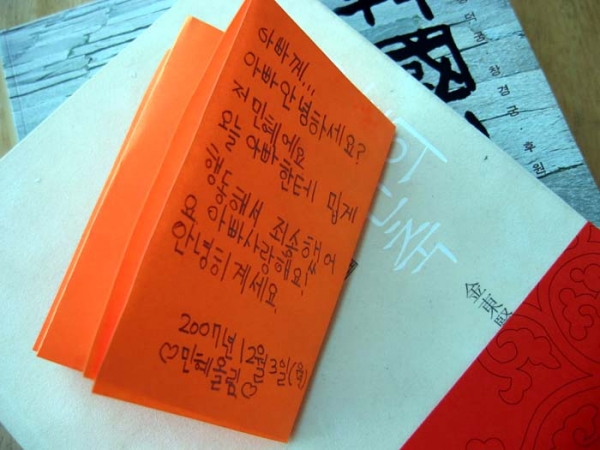 아빠께...
아빠안녕하세요?
저 민혜에요
오늘 아빠한테 밉게
행동해서 죄송했어
요 아빠사랑해요
안녕히계세요.
2007년 12월 3일(월)
♡민혜올림♡
韓國
덕궁·창경궁·후원
金東賢